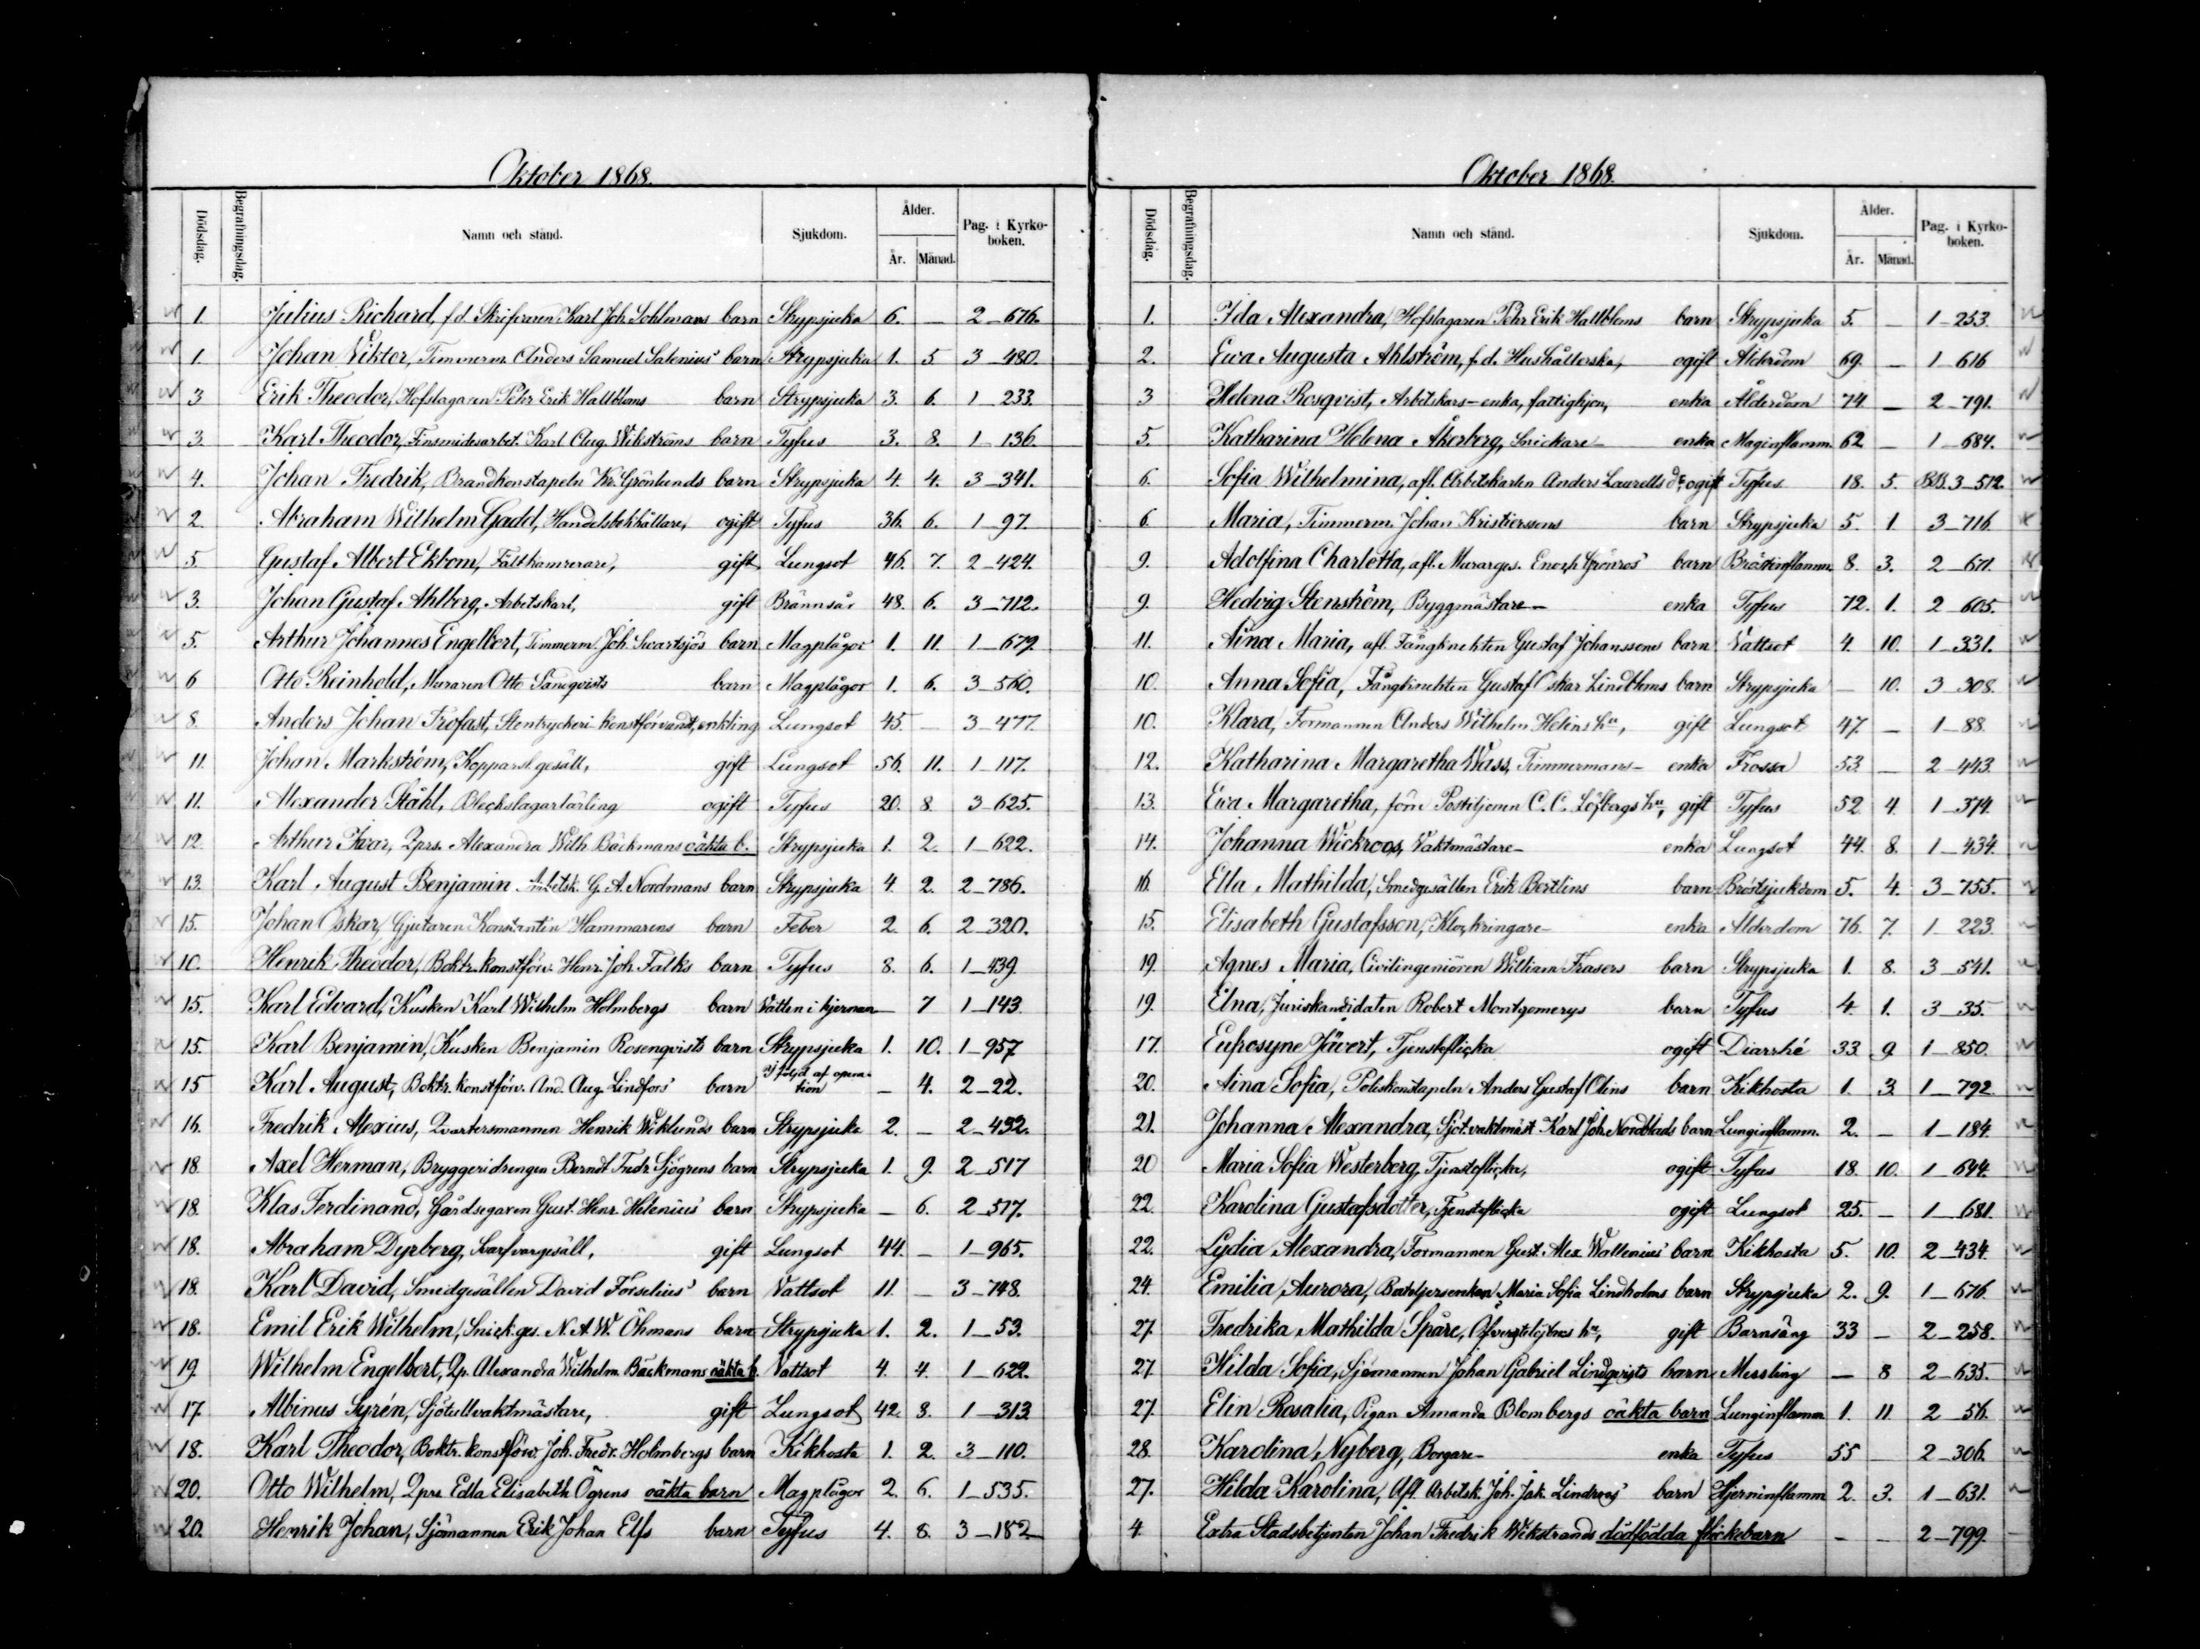 Oktober 1868.
Dödsdag. Begrafningsdag. Namn och stånd. Sjukdom. Ålder. År. Månad. Pag. i Kyrko-boken.
1. Julius Richard, f.d. Skrifvaren Karl Joh. Sohlmans barn Strypsjuka 6. — 2—676.
1. Johan Viktor, Timmerm. Anders Samuel Salenius' barn Strypsjuka 1. 5 3—480.
3 Erik Theodor, Hofslagaren Pehr Erik Hallbloms barn Strypsjuka 3. 6. 1—233.
3. Karl Theodor, Finsmidesarbet. Karl Aug. Wikströms barn Tyfus 3. 8. 1—136.
4. Johan Fredrik, Brandkonstapeln Kr. Grönlunds barn Strypsjuka 4. 4. 3—341.
2. Abraham Wilhelm Gadd, Handelsbokhållare, ogift Tyfus 36. 6. 1—97.
5. Gustaf Albert Ekbom, Fältkamrerare, gift Lungsot 46. 7. 2—424.
3. Johan Gustaf Ahlberg, Arbetskarl, gift Brännsår 48. 6. 3—712.
5. Arthur Johannes Engelbert, Timmerm. Joh. Swartsjös barn Magplågor 1. 11. 1—679.
6 Otto Reinhold, Muraren Otto Sandqvists barn Magplågor 1. 6. 3—560.
8. Anders Johan Trofast, Stentryckeri-konstförvandt, enkling Lungsot 45. — 3—477.
11. Johan Markström, Kopparsl. gesäll, gift Lungsot 56. 11. 1—117.
11. Alexander Ståhl, Bleckslagarlärling ogift Tyfus 20. 8. 3—625.
12. Arthur Ivar, Qprs. Alexandra Wilh. Bäckmans oäkta b. Strypsjuka 1. 2. 1—622.
13. Karl August Benjamin Arbetsk. G. A. Nordmans barn Strypsjuka 4. 2. 2—786.
15. Johan Oskar, Gjutaren Konstantin Hammarens barn Feber 2 6. 2—320.
10. Henrik Theodor, Boktr. konstförv. Henr. Joh. Falks barn Tyfus 8. 6. 1—439.
15. Karl Edvard, Kusken Karl Wilhelm Holmbergs barn Vatten i hjernan — 7 1—143.
15. Karl Benjamin, Kusken Benjamin Rosenqvists barn Strypsjuka 1. 10. 1—957
15 Karl August, Boktr. konstförv. And. Aug. Lindfors' barn I följd af opera-tion — 4. 2—22.
16. Fredrik Alexius, Qvartersmannen Henrik Wiklunds barn Strypsjuka 2. — 2—432.
18. Axel Herman, Bryggeridrengen Berndt Fredr. Sjögrens barn Strypsjuka 1. 9. 2—517
18. Klas Ferdinand, Gårdsegaren Gust. Henr. Helenius' barn Strypsjuka — 6. 2—517.
18. Abraham Dyrberg, Svarfvargesäll, gift Lungsot 44. — 1—965.
18. Karl David, Smedgesällen David Forselius' barn Vattsot 11. — 3—748.
18. Emil Erik Wilhelm, Snick.ges. N. A. W. Öhmans barn Strypsjuka 1. 2. 1—53.
19. Wilhelm Engelbert, Qp. Alexandra Wilhelm. Bäckmans oäkta b. Vattsot 4. 4. 1—622.
17. Albinus Syrén, Sjötullvaktmästare, gift Lungsot 42. 3. 1—313.
18. Karl Theodor, Boktr. konstförv. Joh. Fredr. Holmbergs barn Kikhosta 1. 2. 3—110.
20. Otto Wilhelm, Qprs. Edla Elisabeth Ögrens oäkta barn Magplågor 2. 6. 1—535.
20. Henrik Johan, Sjömannen Erik Johan Elfs barn Tyfus 4. 8. 3—182
Oktober 1868.
Dödsdag. Begrafningsdag. Namn och stånd. Sjukdom. Ålder. År. Månad. Pag. i Kyrko-boken.
1. Ida Alexandra, Hofslagaren Pehr Erik Hallbloms barn Strypsjuka 5. — 1—253.
2. Ewa Augusta Ahlström, f.d. Hushållerska, ogift Ålderdom 69. — 1—616
3 Helena Rosqvist, Arbetskars-enka, fattighjon, enka Ålderdom 74 — 2—791.
5. Katharina Helena Åkerberg, Snickare- enka Maginflamm. 62 — 1—684.
6. Sofia Wilhelmina, afl. Arbetskarlen Anders Laurells dr. ogift Tyfus 18. 5. 3—512.
6. Maria, Timmerm. Johan Kristierssons barn Strypsjuka 5. 1. 3—716
9. Adolfina Charlotta, afl. Murarges. Enoch Grönros' barn Bröstinflamm. 8. 3. 2—671.
9. Hedvig Stenström, Byggmästare- enka Tyfus 72. 1. 2—605.
11. Aina Maria, afl. Fångknekten Gustaf Johanssons barn Vattsot 4. 10. 1—331.
10. Anna Sofia, Fångknekten Gustaf Oskar Lindbloms barn Strypsjuka — 10. 3—308.
10. Klara, Formannen Anders Wilhelm Helins hu, gift Lungsot 47. — 1—88.
12. Katharina Margaretha Wass, Timmermans- enka Frossa 53. — 2—443.
13. Ewa Margaretha, förre Postiljonen C. C. Löfbergs hu, gift Tyfus 52 4 1—374.
14. Johanna Wickroos, Vaktmästare- enka Lungsot 44. 8. 1—434.
16. Ella Mathilda, Smedgesällen Erik Bertlins barn Bröstsjukdom 5. 4. 3—755.
15. Elisabeth Gustafsson, Klockringare- enka Ålderdom 76. 7. 1—223.
19. Agnes Maria, Civilingeniören William Frasers barn Strypsjuka 1. 8. 3—541.
19. Elna, Juriskandidaten Robert Montgomerys barn Tyfus 4. 1. 3—35.
17. Eufrosyne Jävert, Tjensteflicka ogift Diarrhé 33. 9 1—850.
20. Aina Sofia, Poliskonstapeln Anders Gustaf Olins barn Kikhosta 1. 3 1—792.
21. Johanna Alexandra, Sjöt.vaktmäst. Karl Joh. Nordblads barn Lunginflamm. 2. — 1—184.
20 Maria Sofia Westerberg, Tjensteflicka, ogift Tyfus 18. 10. 1—644.
22. Karolina Gustafsdotter, Tjensteflicka ogift Lungsot 25. — 1—681.
22. Lydia Alexandra, Formannen Gust. Alex. Wallenius' barn Kikhosta 5. 10. 2—434.
24. Emilia Aurora, Maria Sofia Lindholms barn Strypsjuka 2. 9. 1—576.
27. Fredrika Mathilda Spåre, Öfverstelöjtnts hu, gift Barnsäng 33 — 2—258.
27. Hilda Sofia, Sjömannen Johan Gabriel Lindqvists barn Messling — 8 2—635.
27. Elin Rosalia, Pigan Amanda Blombergs oäkta barn Lunginflamm 1. 11. 2—56.
28. Karolina Nyberg, Borgare- enka Tyfus 55 — 2—306.
27. Hilda Karolina, Afl. Arbetsk. Joh. Jak. Lindroos' barn Hjerninflamm 2. 3. 1—631.
4 Extra Stadsbetjenten Johan Fredrik Wikstrands dödfödda flickebarn — — 2—799.